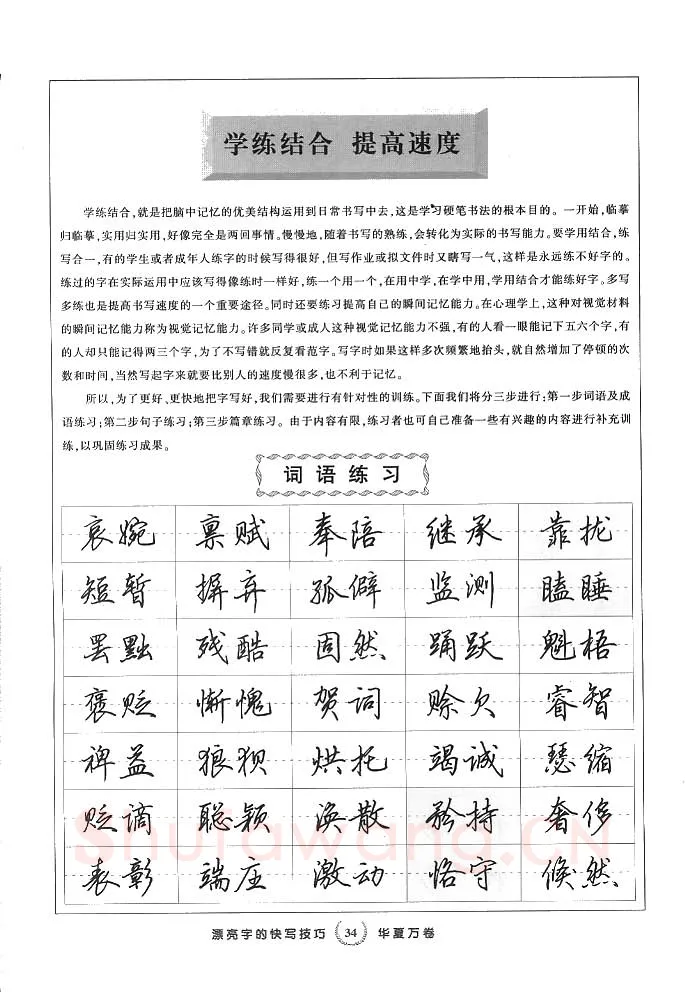 学练结合 提高速度
学练结合,就是把脑中记忆的优美结构运用到日常书写中去,这是学习硬笔书法的根本目的。一开始,临摹
归临摹,实用归实用,好像完全是两回事情。慢慢地,随着书写的熟练,会转化为实际的书写能力。要学用结合,练
写合一,有的学生或者成年人练字的时候写得很好,但写作业或拟文件时又瞎写一气,这样是永远练不好字的。
练过的字在实际运用中应该写得像练时一样好,练一个用一个,在用中学,在学中用,学用结合才能练好字。多写
多练也是提高书写速度的一个重要途径。同时还要练习提高自己的瞬间记忆能力。在心理学上,这种对视觉材料
的瞬间记忆能力称为视觉记忆能力。许多同学或成人这种视觉记忆能力不强,有的人看一眼能记下五六个字,有
的人却只能记得两三个字,为了不写错就反复看范字。写字时如果这样多次频繁地抬头,就自然增加了停顿的次
数和时间,当然写起字来就要比别人的速度慢很多,也不利于记忆。
所以,为了更好、更快地把字写好,我们需要进行有针对性的训练。下面我们将分三步进行:第一步词语及成
语练习;第二步句子练习;第三步篇章练习。由于内容有限,练习者也可自己准备一些有兴趣的内容进行补充训
练,以巩固练习成果。
词语练习
哀婉 禀赋 奉陪 继承 靠拢
短暂 摒弃 孤僻 监测 瞌睡
罢黜 残酷 固然 踊跃 魁梧
褒贬 惭愧 贺词 赊欠 睿智
裨益 狼狈 烘托 竭诚 瑟缩
贬谪 聪颖 涣散 矜持 奢侈
表彰 端庄 激动 恪守 倏然
Shufawang.CN
漂亮字的快写技巧 34 华夏万卷